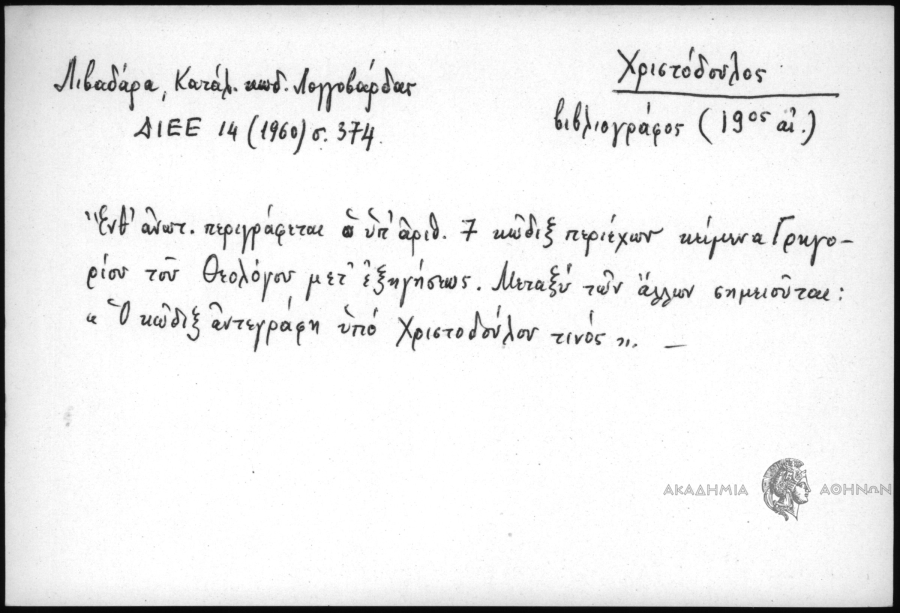 Λιβαδάρα, Κατάλ. κωδ. Λογγοβάρδας
ΔΙΕΕ 14 (1960) σ. 374.
Χριστόδουλος
βιβλιογράφος (19ος αἰ.)
Ἔνθ' ἀνωτ. περιγράφεται ὁ ὑπ' ἀριθ. 7 κῶδιξ περιέχων κείμενα Γρηγο-
ρίου τοῦ Θεολόγου μετ' ἐξηγήσεως. Μεταξὺ τῶν ἄλλων σημειοῦται:
« Ὁ κῶδιξ ἀντεγράφη ὑπό Χριστοδούλου τινός ». —
ΑΚΑΔΗΜΙΑ ΑΘΗΝΩΝ